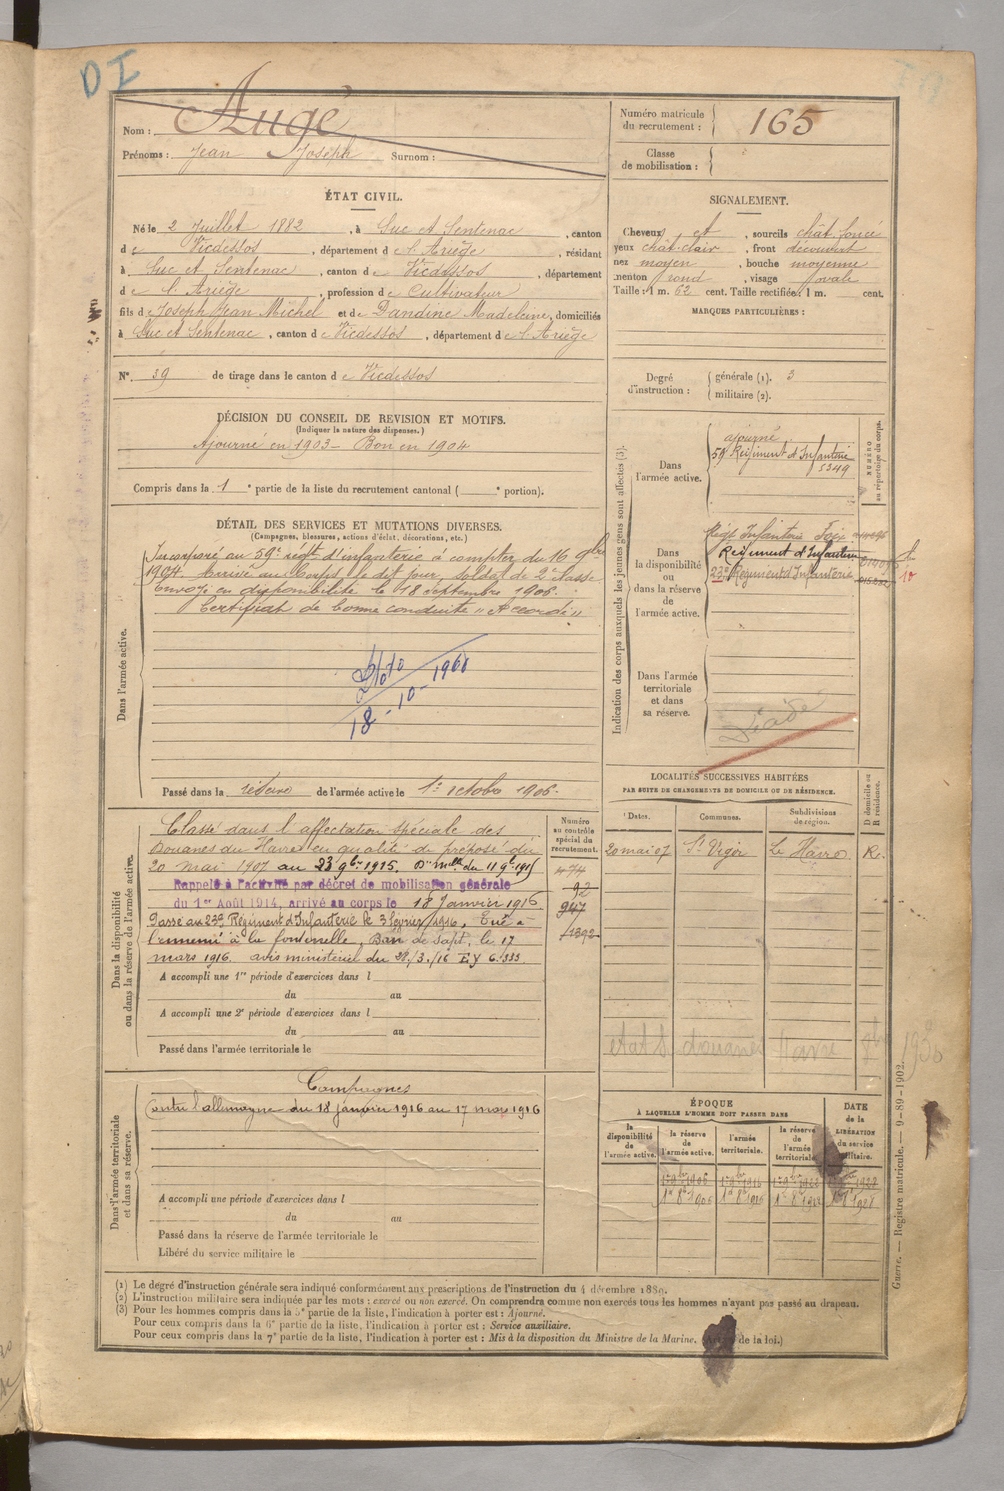 DI
Nom : Augé
Prénoms : Jean Joseph Surnom :
Numéro matricule du recrutement : 165
Classe de mobilisation :
ÉTAT CIVIL.
Né le 2 Juillet 1882, à Suc et Sentenac, canton
de Vicdessos, département de l'Ariège, résidant
à Suc et Sentenac, canton de Vicdessos, département
de l'Ariège, profession de Cultivateur
fils de Joseph Jean Michel et de Dandine Madeleine, domiciliés
à Suc et Sentenac, canton de Vicdessos, département de l'Ariège
N° 39 de tirage dans le canton de Vicdessos
SIGNALEMENT.
Cheveux et, sourcils chât. foncé
yeux chât. clair, front découvert
nez moyen, bouche moyenne
menton rond, visage ovale
Taille : 1 m. 62 cent. Taille rectifiée : 1 m. cent.
MARQUES PARTICULIÈRES :
Degré d'instruction : générale (1). 3
militaire (2).
DÉCISION DU CONSEIL DE REVISION ET MOTIFS.
(Indiquer la nature des dispenses.)
Ajourné en 1903 - Bon en 1904
Compris dans la 1e partie de la liste du recrutement cantonal ( e portion).
DÉTAIL DES SERVICES ET MUTATIONS DIVERSES.
(Campagnes, blessures, actions d'éclat, décorations, etc.)
Dans l'armée active.
Incorporé au 59e régt d'infanterie à compter du 16 9bre
1904. Arrivé au Corps le dit jour, soldat de 2e classe
Envoyé en disponibilité le 18 septembre 1906.
Certificat de bonne conduite "Accordé"
18-10-1968
Passé dans la réserve de l'armée active le 1er octobre 1906.
Indication des corps auxquels les jeunes gens sont affectés (3).
NUMÉRO au répertoire du corps.
Dans l'armée active.
ajourné
59 Régiment d'Infanterie
5349
Dans la disponibilité ou dans la réserve de l'armée active.
Régt Infanterie Foix
Régiment d'Infanterie
23e Régiment d'Infanterie
Dans l'armée territoriale et dans sa réserve.
LOCALITÉS SUCCESSIVES HABITÉES
PAR SUITE DE CHANGEMENTS DE DOMICILE OU DE RÉSIDENCE.
Dates. Communes. Subdivisions de région. D domicile ou R résidence.
20 mai 07 St Vigor Le Havre R.
douanes Havre
Dans la disponibilité ou dans la réserve de l'armée active.
Numéro au contrôle spécial du recrutement.
Classé dans l'affectation spéciale des
Douanes du Havre en qualité de préposé du
20 mai 1907 au 23 9bre 1915. Don mlle du 11 9b 1915
Rappelé à l'activité par décret de mobilisation générale
du 1er Août 1914, arrivé au corps le 18 Janvier 1916
Passé au 23e Régiment d'Infanterie le 3 février 1916. Tué à
l'ennemi à la fontenelle, Ban de Sapt, le 17
mars 1916. avis ministériel du 28/3/16 E y 6.333
474
92
947
1392
A accompli une 1re période d'exercices dans l
du au
A accompli une 2e période d'exercices dans l
du au
Passé dans l'armée territoriale le
Dans l'armée territoriale et dans sa réserve.
Campagnes
Contre l'allemagne du 18 janvier 1916 au 17 mars 1916
A accompli une période d'exercices dans l
du au
Passé dans la réserve de l'armée territoriale le
Libéré du service militaire le
ÉPOQUE
À LAQUELLE L'HOMME DOIT PASSER DANS
la disponibilité de l'armée active. la réserve de l'armée active. l'armée territoriale. la réserve de l'armée territoriale.
DATE de la LIBÉRATION du service militaire.
Guerre. — Registre matricule. — 9-89-1902.
(1) Le degré d'instruction générale sera indiqué conformément aux prescriptions de l'instruction du 4 décembre 1889.
(2) L'instruction militaire sera indiquée par les mots : exercé ou non exercé. On comprendra comme non exercés tous les hommes n'ayant pas passé au drapeau.
(3) Pour les hommes compris dans la 5e partie de la liste, l'indication à porter est : Ajourné.
Pour ceux compris dans la 6e partie de la liste, l'indication à porter est : Service auxiliaire.
Pour ceux compris dans la 7e partie de la liste, l'indication à porter est : Mis à la disposition du Ministre de la Marine. de la loi.)